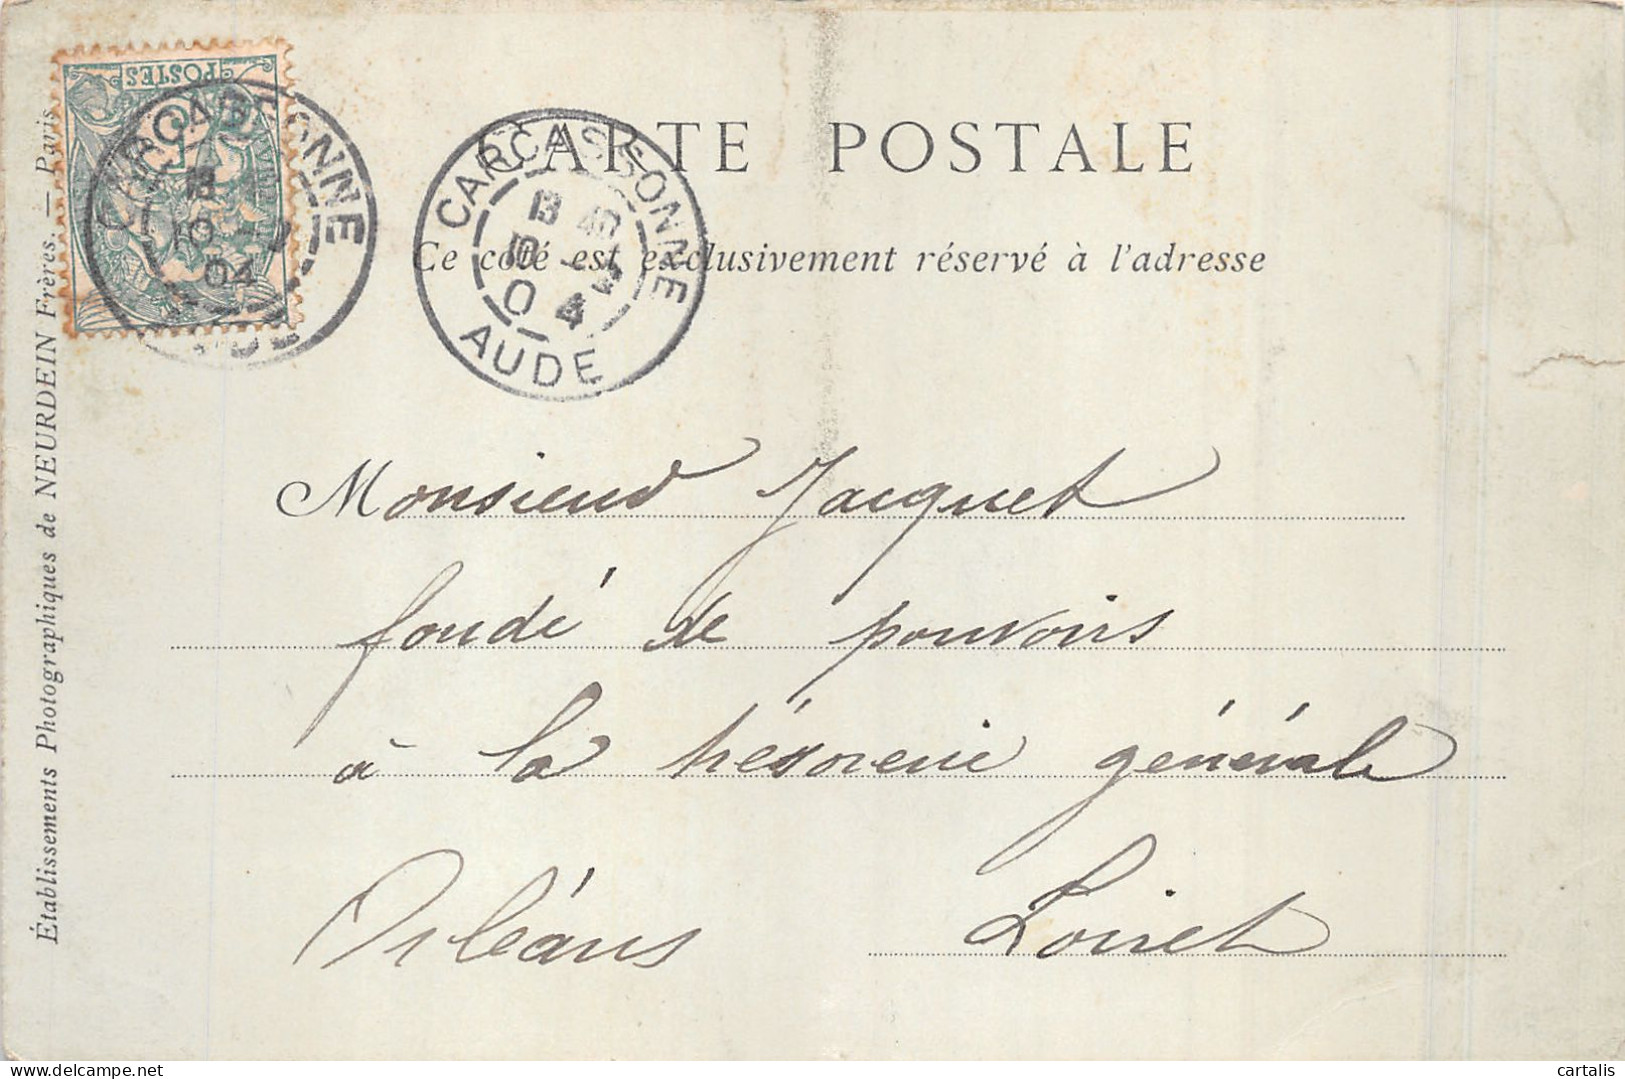 CARTE POSTALE
Ce côté est exclusivement réservé à l'adresse
POSTES
CARCASSONNE
04
CARCASSONNE
04
AUDE
Monsieur Jacquet
fondé de pouvoirs
à la trésorerie générale
Orléans Loiret
Établissements Photographiques de NEURDEIN Frères. — Paris
cartalis